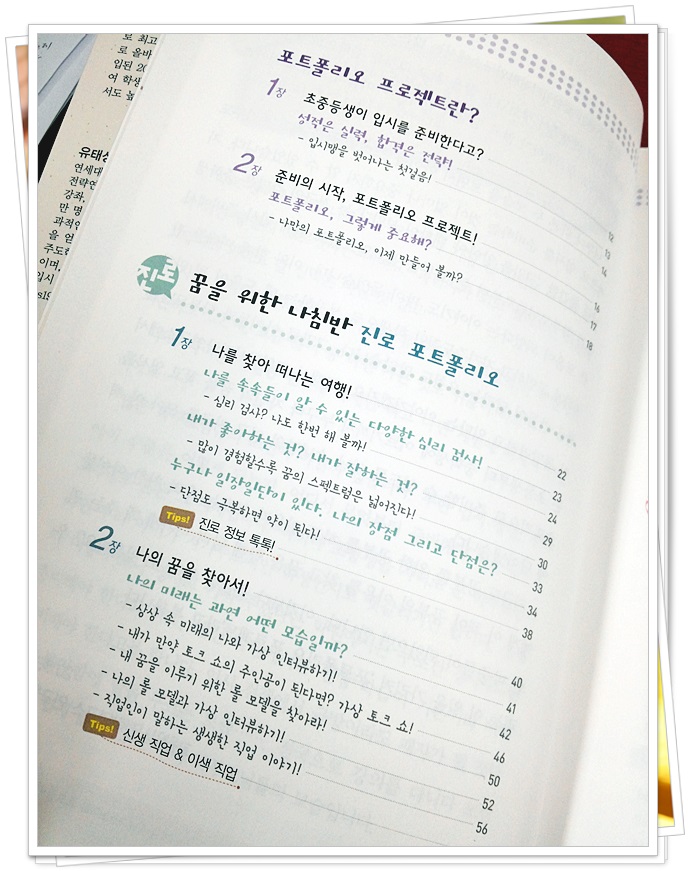 로 최고
로 올바
입된 20
여 학생
서도 높
유태성
연세대
전략연
강좌,
만 명
과적인
을 얻
주도
이며,
입시
포트폴리오 프로젝트란?
1장 초중등생이 입시를 준비한다고? 12
성적은 실력, 합격은 전략! 13
- 입시맹을 벗어나는 첫걸음! 14
2장 준비의 시작, 포트폴리오 프로젝트! 16
포트폴리오, 그렇게 중요해? 17
- 나만의 포트폴리오, 이제 만들어 볼까? 18
진로 꿈을 위한 나침반 진로 포트폴리오
1장 나를 찾아 떠나는 여행! 22
나를 속속들이 알 수 있는 다양한 심리 검사! 23
- 심리 검사? 나도 한번 해 볼까! 24
내가 좋아하는 것? 내가 잘하는 것? 29
- 많이 경험할수록 꿈의 스펙트럼은 넓어진다! 30
누구나 일장일단이 있다. 나의 장점 그리고 단점은? 33
- 단점도 극복하면 약이 된다! 34
Tips! 진로 정보 톡톡! 38
2장 나의 꿈을 찾아서! 40
나의 미래는 과연 어떤 모습일까? 41
- 상상 속 미래의 나와 가상 인터뷰하기! 42
- 내가 만약 토크 쇼의 주인공이 된다면? 가상 토크 쇼! 46
- 내 꿈을 이루기 위한 롤 모델을 찾아라! 50
- 나의 롤 모델과 가상 인터뷰하기! 52
- 직업인이 말하는 생생한 직업 이야기! 56
Tips! 신생 직업 & 이색 직업